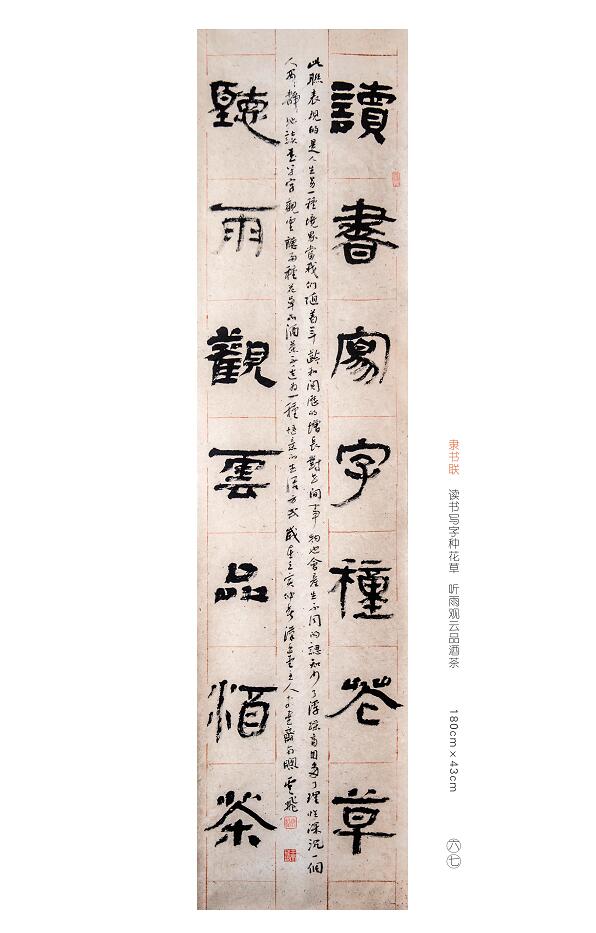 讀書寫字種花草
此聯表現的是人生另一種境界當我們隨着年齡和閱歷的增長對世間事物也會產生不同的認知少了浮躁盲目多了理性深沉一個
人安靜地讀書写字觀雲聽雨種花草品酒茶
一種 的生活方式 歲在 亥仲 主人於 齋 雲飛
聽雨觀雲品酒茶
隶书联 读书写字种花草 听雨观云品酒茶 180cm×43cm
六七